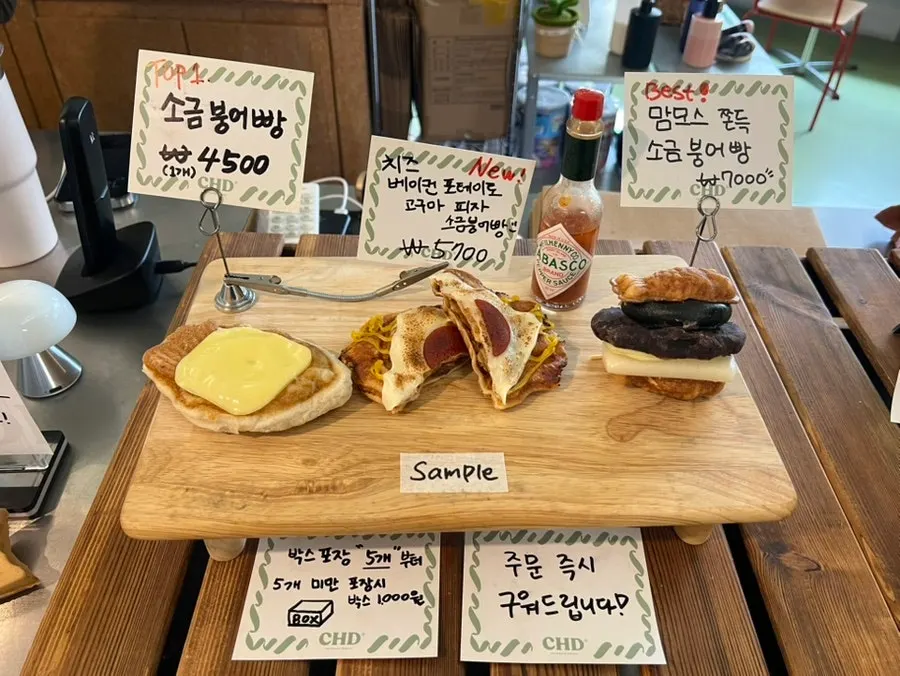 Top 1
소금 붕어빵
₩ 4500
(1개)
CHD
치즈 New!
베이컨 포테이토
고구마 피자
소금붕어빵
₩ 5700
Best!
맘모스 쫀득
소금붕어빵
₩7000
CHD
TABASCO
Sample
박스포장 "5개"부터
5개 미만 포장시
박스 1,000원
BOX
CHD
주문 즉시
구워드립니다!
CHD